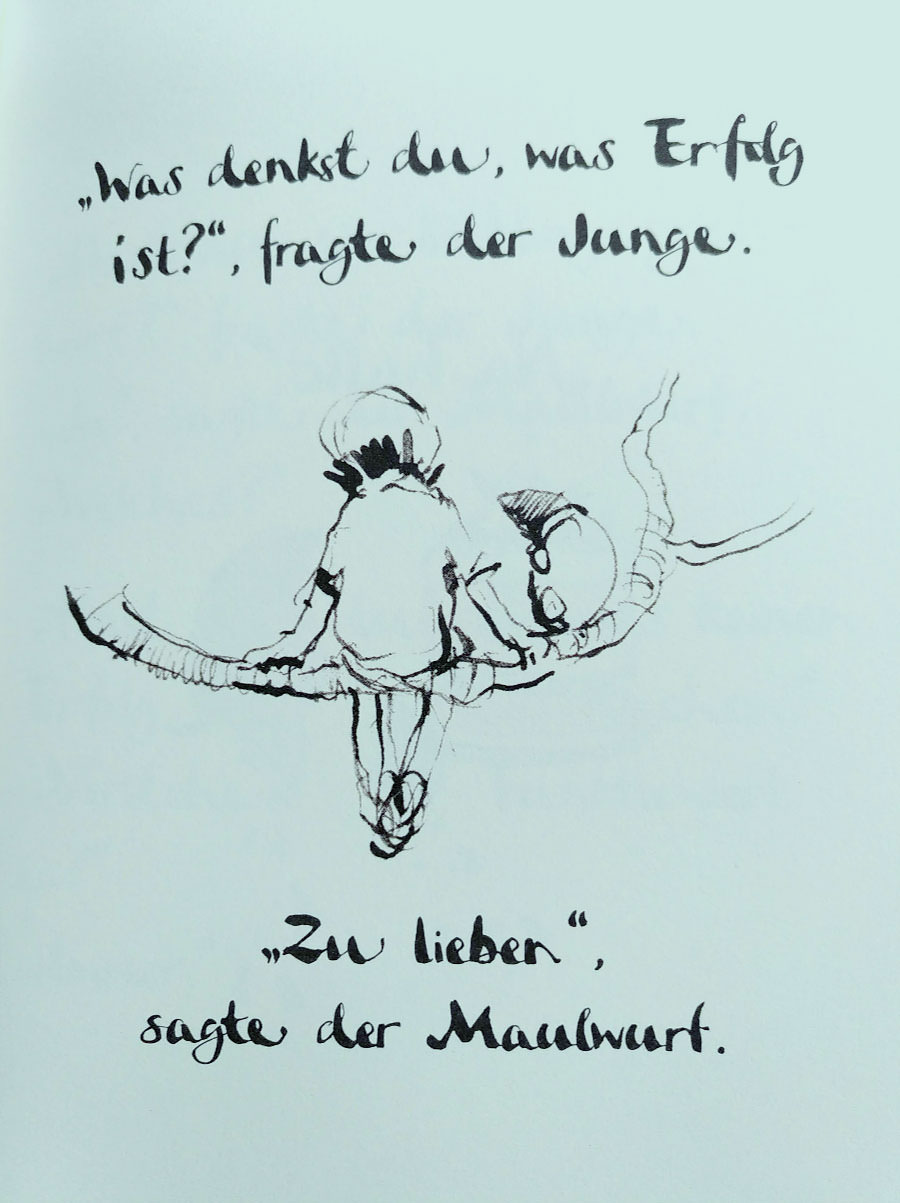 „Was denkst du, was Erfolg
ist?“, fragte der Junge.
„Zu lieben“,
sagte der Maulwurf.